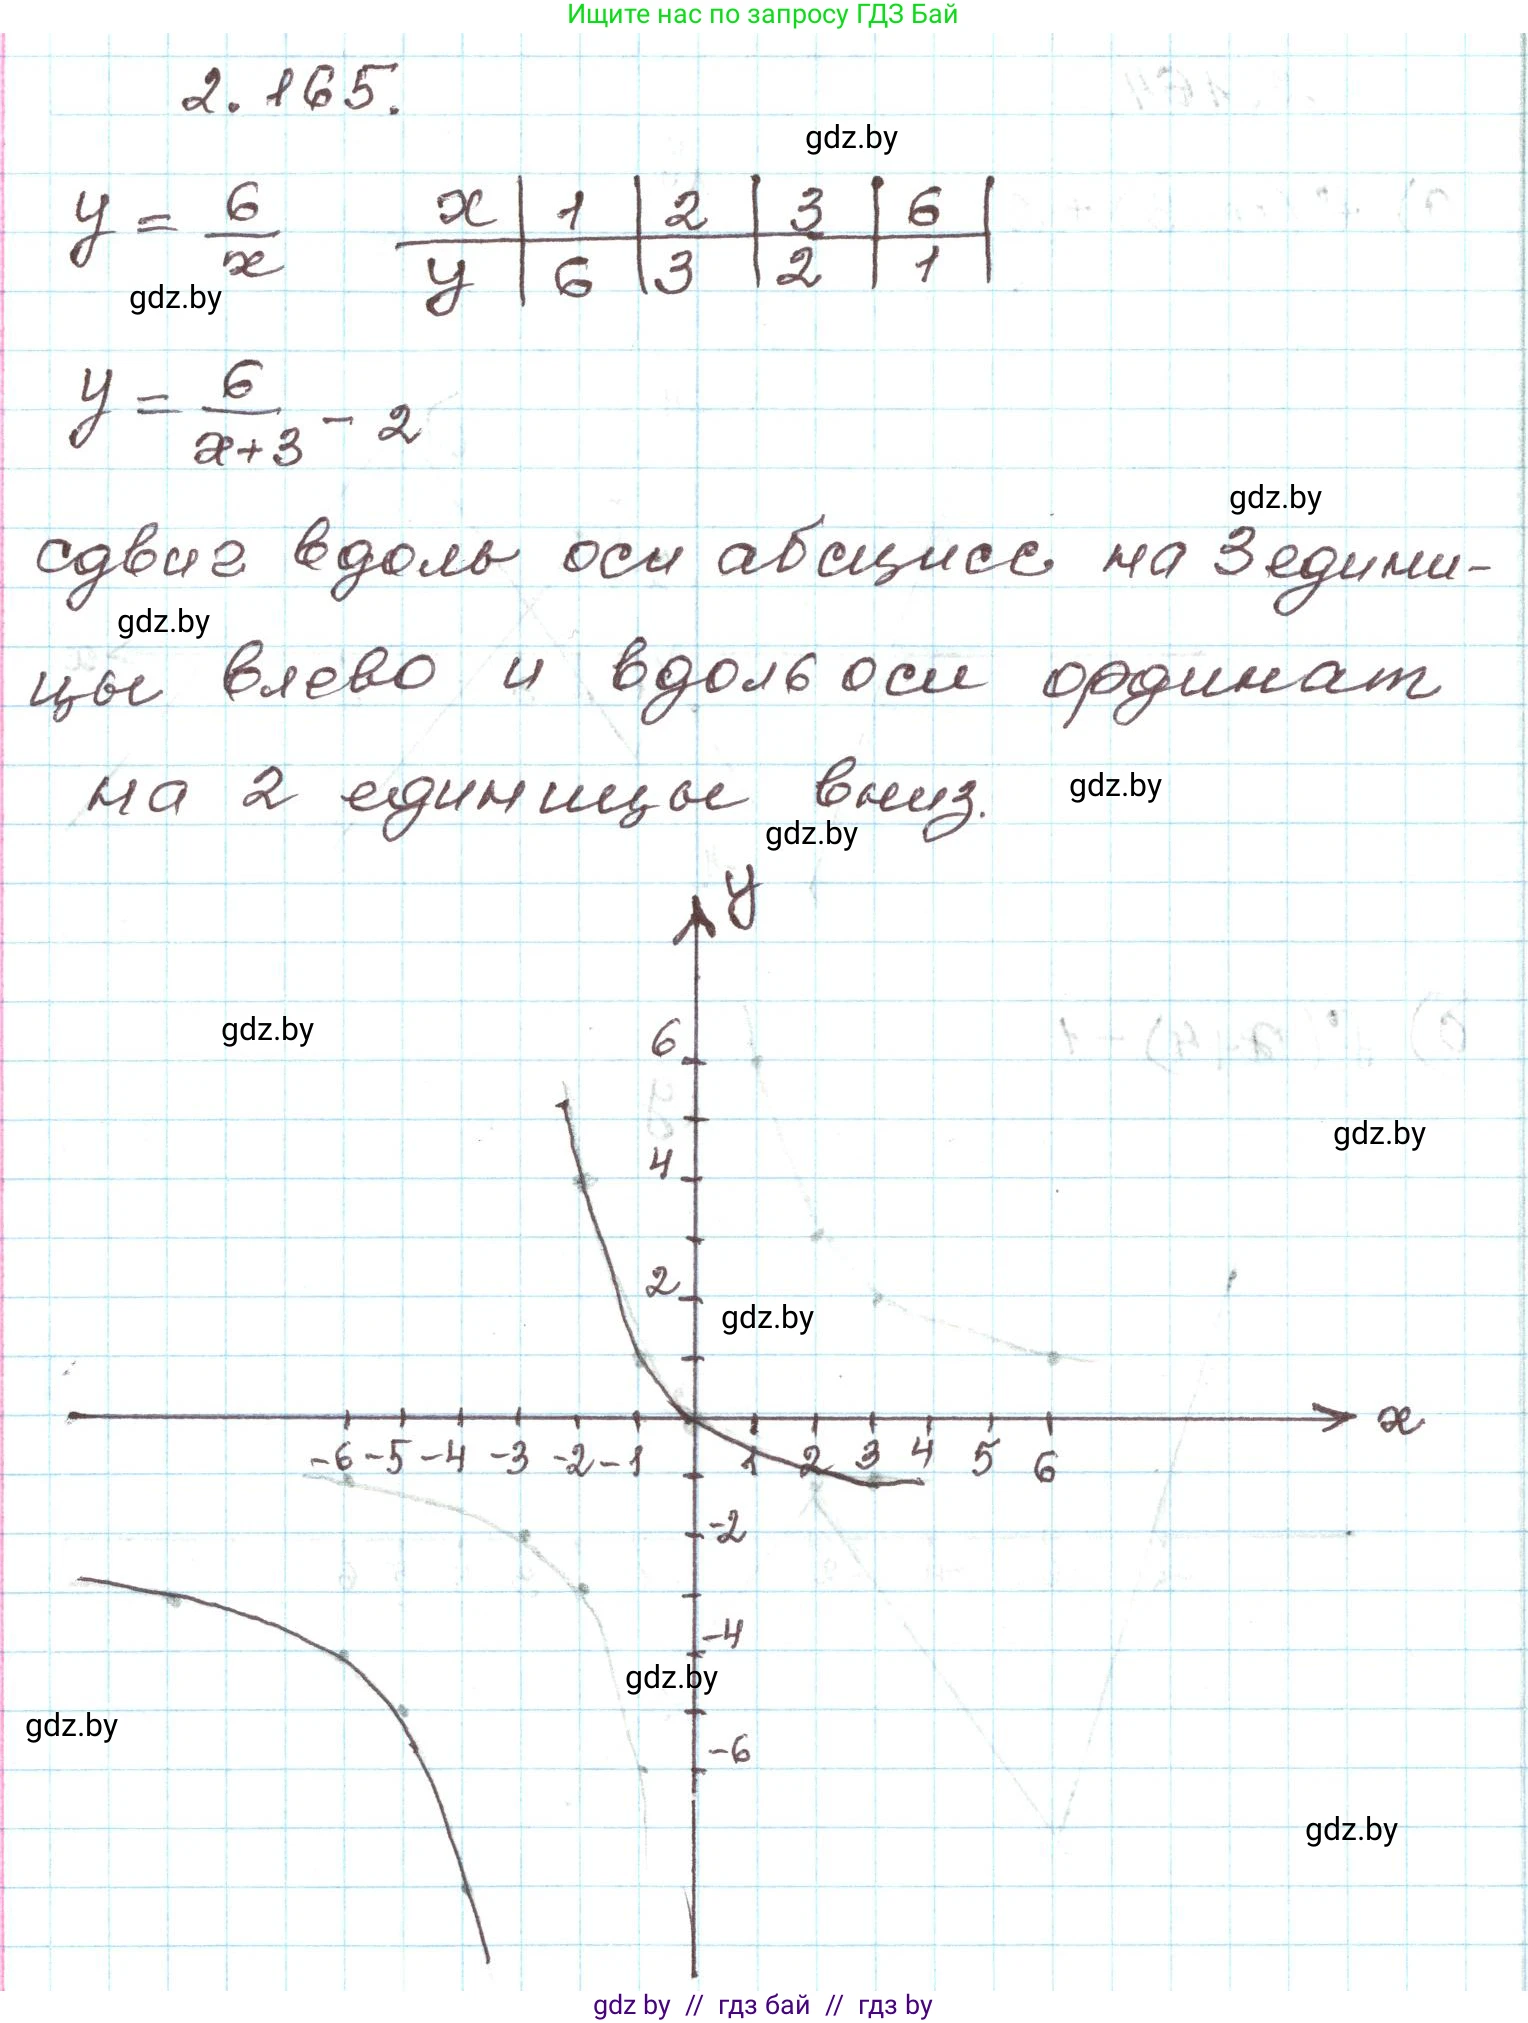 Ищите нас по запросу ГДЗ Бай
2.165.
gdz.by
y = 6/x
x | 1 | 2 | 3 | 6
y | 6 | 3 | 2 | 1
gdz.by
y = 6/(x+3) - 2
gdz.by
сдвиг вдоль оси абсцисс на 3 едини-
gdz.by
цы влево и вдоль оси ординат
на 2 единицы вниз.
gdz.by
gdz.by
y
gdz.by
6
gdz.by
4
2
gdz.by
x
-6 -5 -4 -3 -2 -1 1 2 3 4 5 6
-2
-4
gdz.by
gdz.by
-6
gdz.by
gdz by // гдз бай // гдз by